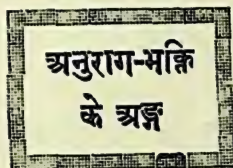 अनुराग-भक्ति
के अङ्ग